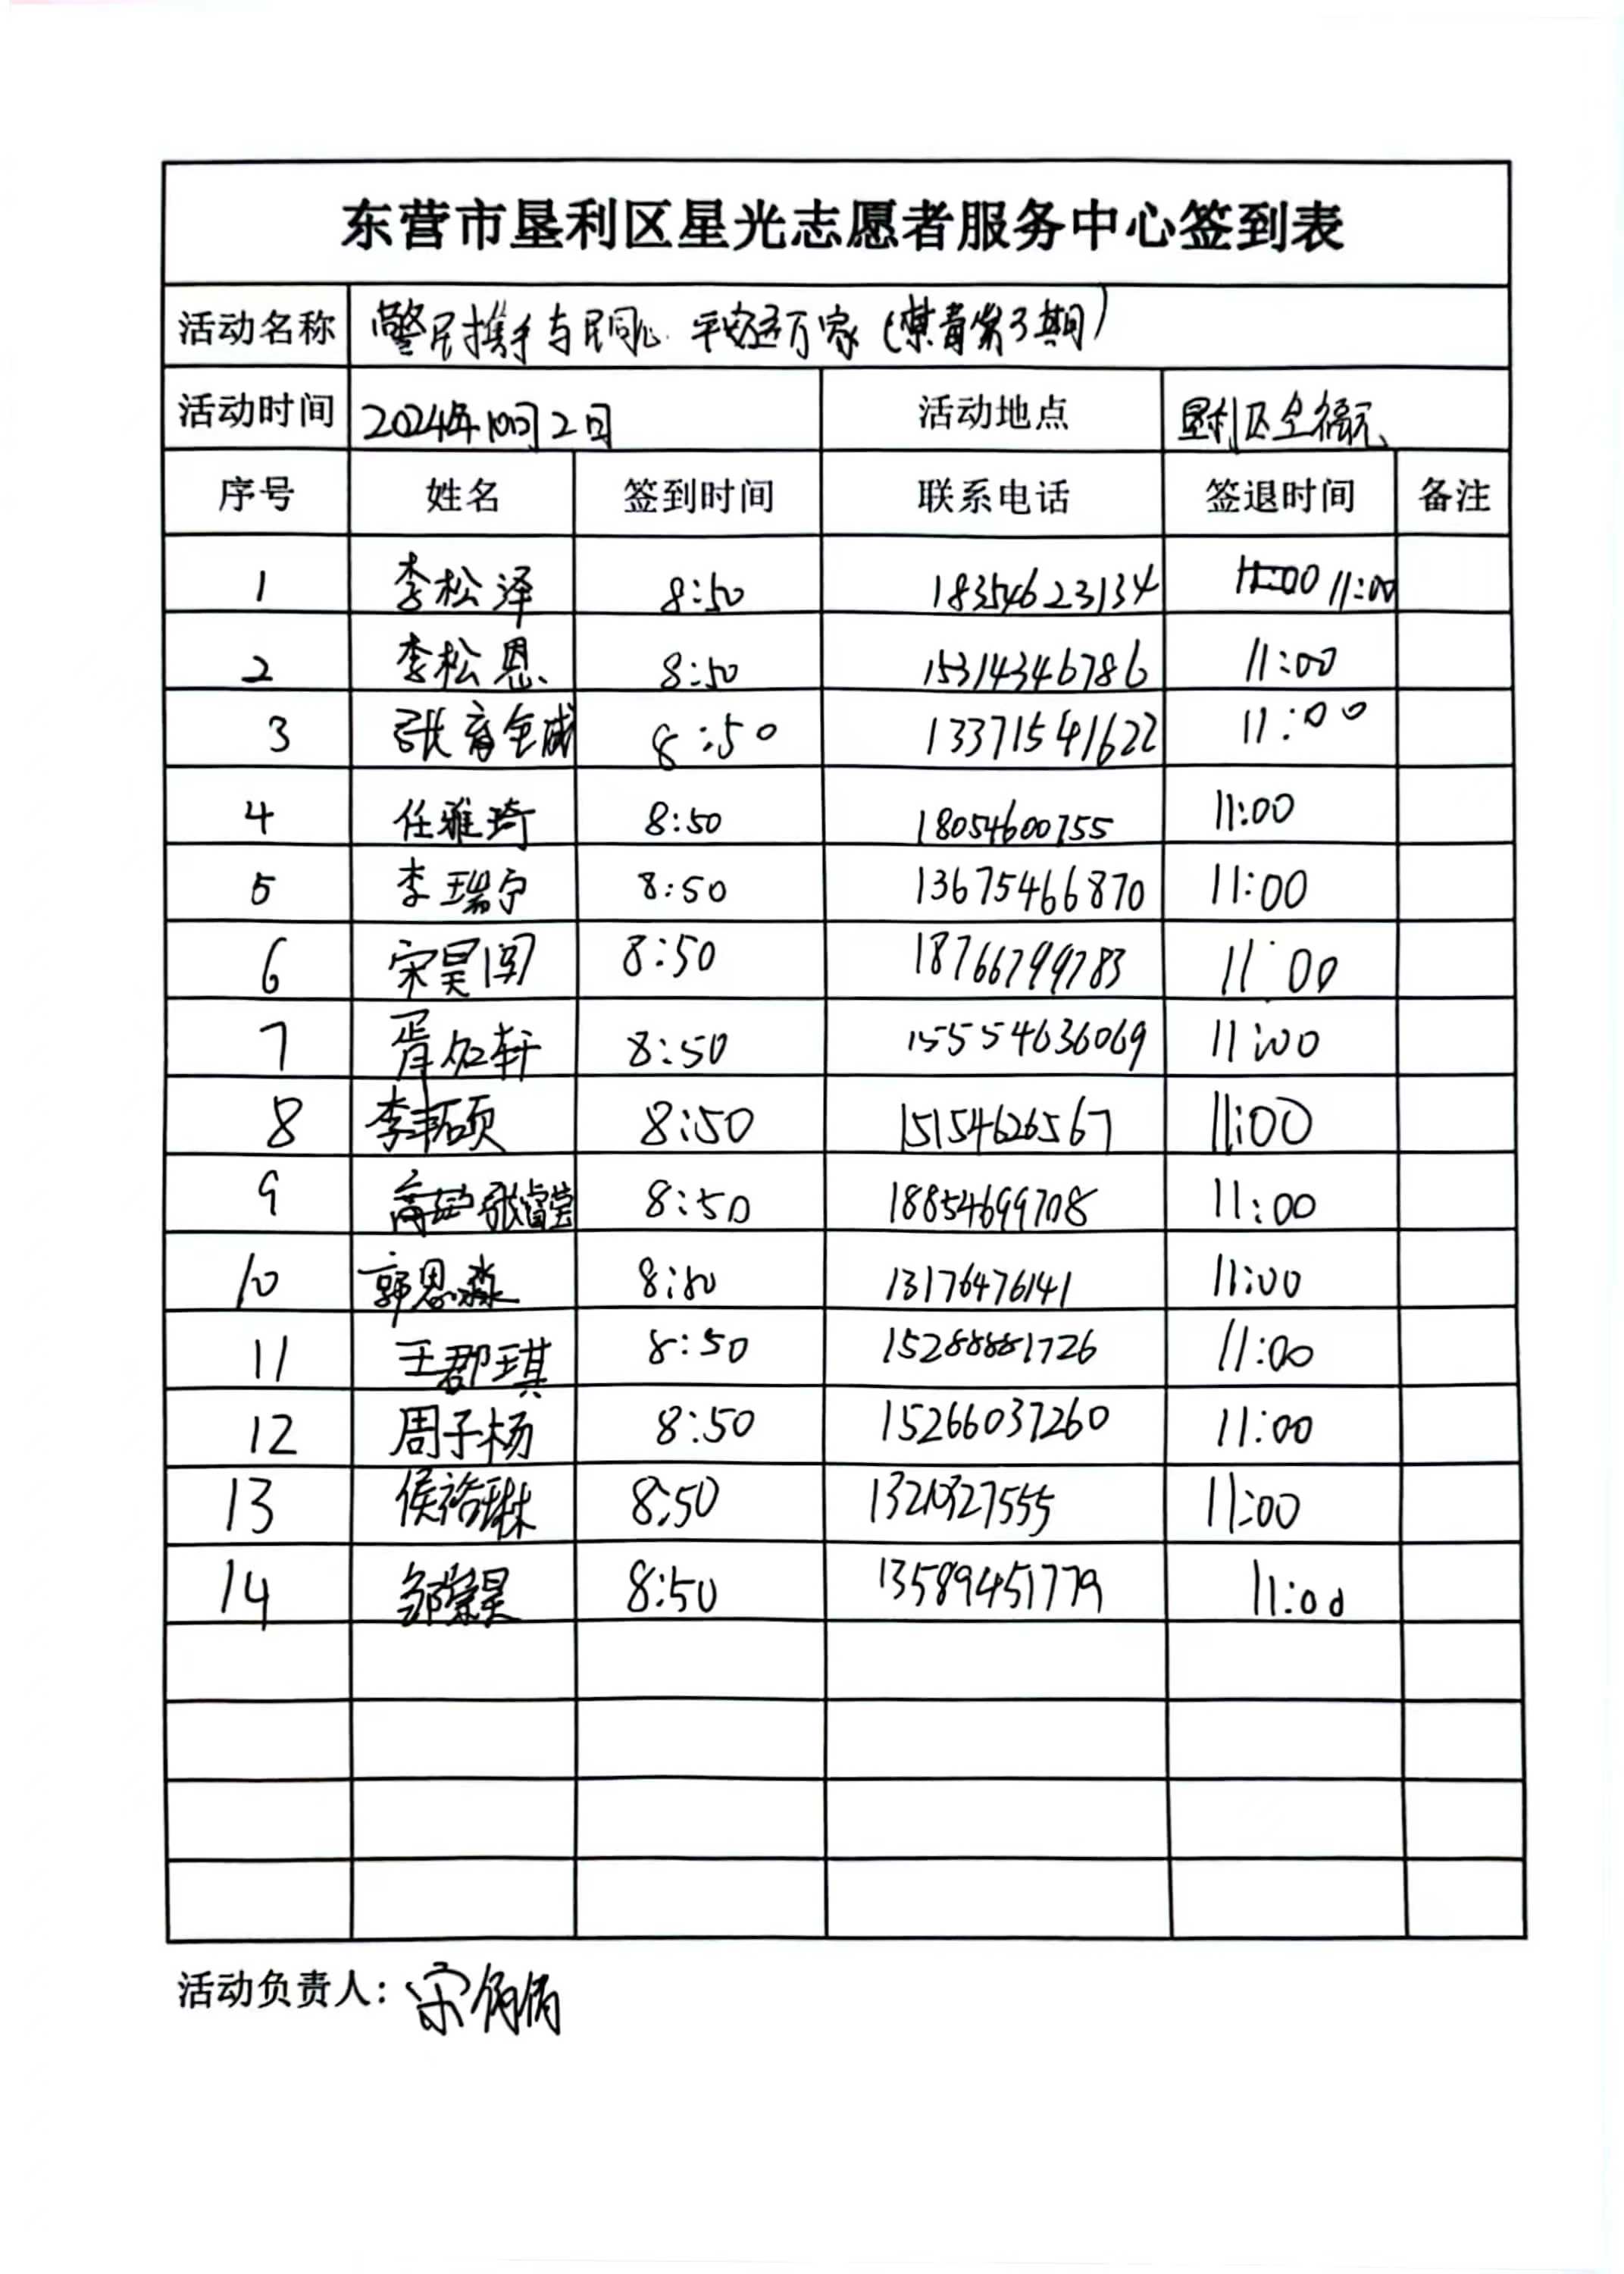 东营市垦利区星光志愿者服务中心签到表
活动名称 警民携手与民同心 平安送万家(第3期)
活动时间 2024年10月2日 活动地点 垦利区
序号 姓名 签到时间 联系电话 签退时间 备注
1 李松泽 8:50 18354623134 11:00 11:00
2 李松恩 8:50 15314346786 11:00
3 张育全成 8:50 13371541622 11:00
4 任雅琦 8:50 18054600755 11:00
5 李瑞宁 8:50 13675466870 11:00
6 宋昊 8:50 18766799783 11:00
7 胥 轩 8:50 15554636069 11:00
8 李 硕 8:50 15154626567 11:00
9 张 8:50 18854699708 11:00
10 郭恩淼 8:50 13176476141 11:00
11 王郡琪 8:50 15288881726 11:00
12 周子杨 8:50 15266037260 11:00
13 侯裕琳 8:50 11:00
14 邹 昊 8:50 13589451779 11:00
活动负责人: 宋倩倩